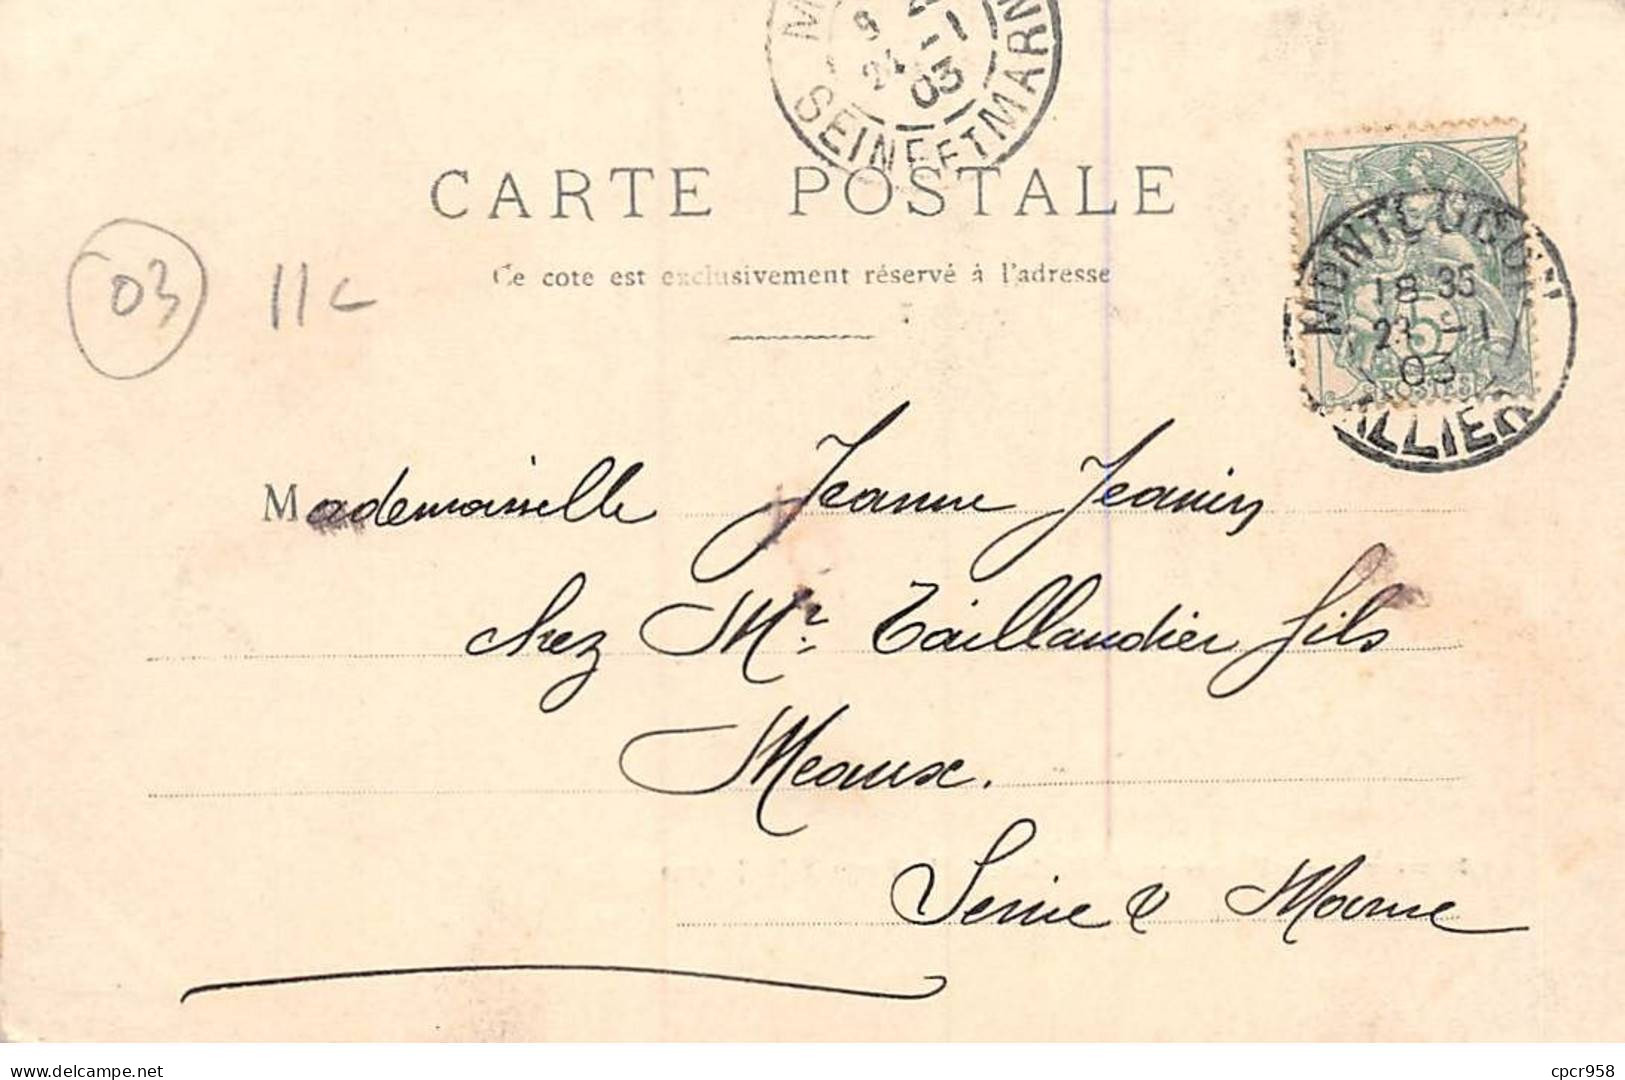 SEINE ET MARN
24 -1
03
CARTE POSTALE
Ce cote est exclusivement réservé à l'adresse
03 11c
MONTLUÇON
18 35
23 -1
03
ALLIER
5
POSTES
Mademoiselle Jeanne Jeanin
chez Mr. Taillandier fils
Meaux.
Seine & Marne
cpcr958